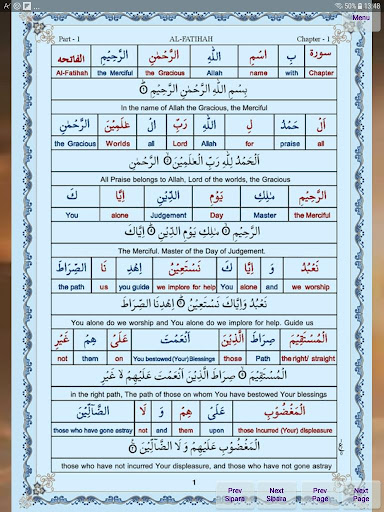 13:48
50%
Menu
Part - 1 AL-FATIHAH Chapter - 1
سورة بِ اسْمِ اللّٰهِ الرَّحْمٰنِ الرَّحِيْمِ الفاتحه
Al-Fatihah the Merciful the Gracious Allah name with Chapter
بِسْمِ اللّٰهِ الرَّحْمٰنِ الرَّحِيْمِ ۝
In the name of Allah the Gracious, the Merciful
اَلْ حَمْدُ لِ اللّٰهِ رَبِّ الْ عٰلَمِيْنَ الرَّحْمٰنِ
the Gracious Worlds all Lord Allah for praise all
اَلْحَمْدُ لِلّٰهِ رَبِّ الْعٰلَمِيْنَ ۝ الرَّحْمٰنِ
All Praise belongs to Allah, Lord of the worlds, the Gracious
الرَّحِيْمِ مٰلِكِ يَوْمِ الدِّيْنِ اِيَّا كَ
You alone Judgement Day Master the Merciful
الرَّحِيْمِ ۝ مٰلِكِ يَوْمِ الدِّيْنِ ۝ اِيَّاكَ
The Merciful. Master of the Day of Judgement.
نَعْبُدُ وَ اِيَّا كَ نَسْتَعِيْنُ اِهْدِ نَا الصِّرَاطَ
the path us you guide we implore for help You alone and we worship
نَعْبُدُ وَاِيَّاكَ نَسْتَعِيْنُ ۝ اِهْدِنَا الصِّرَاطَ
You alone do we worship and You alone do we implore for help. Guide us
الْمُسْتَقِيْمَ صِرَاطَ الَّذِيْنَ اَنْعَمْتَ عَلَىْ هِمْ غَيْرِ
not them on You bestowed (Your) Blessings those Path the right/ straight
الْمُسْتَقِيْمَ ۝ صِرَاطَ الَّذِيْنَ اَنْعَمْتَ عَلَيْهِمْ ۙ غَيْرِ
in the right path, The path of those on whom You have bestowed Your Blessings
الْمَغْضُوْبِ عَلَىْ هِمْ وَ لَا الضَّآلِّيْنَ
those who have gone astray not and them upon those Incurred (Your) displeasure
الْمَغْضُوْبِ عَلَيْهِمْ وَ لَا الضَّآلِّيْنَ ۝
those who have not incurred Your displeasure, and those who have not gone astray
1
Prev Sipara Next Sipara Prev Page Next Page